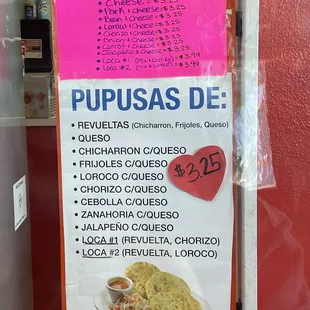 Cheese = $3.25
Pork + Cheese = $3.25
Bean + Cheese = $3.25
Loroco + Cheese = $3.25
Chorizo + Cheese = $3.25
Onion + Cheese = $3.25
Carrot + Cheese = $3.25
Jalapeño + Cheese = $3.25
Loca #1 Chorizo) = $3.99
Loca #2 Loroco) = $3.99
PUPUSAS DE:
• REVUELTAS (Chicharron, Frijoles, Queso)
• QUESO
• CHICHARRON C/QUESO
• FRIJOLES C/QUESO
• LOROCO C/QUESO
• CHORIZO C/QUESO
• CEBOLLA C/QUESO
• ZANAHORIA C/QUESO
• JALAPEÑO C/QUESO
• LOCA #1 (REVUELTA, CHORIZO)
• LOCA #2 (REVUELTA, LOROCO)
$3.25